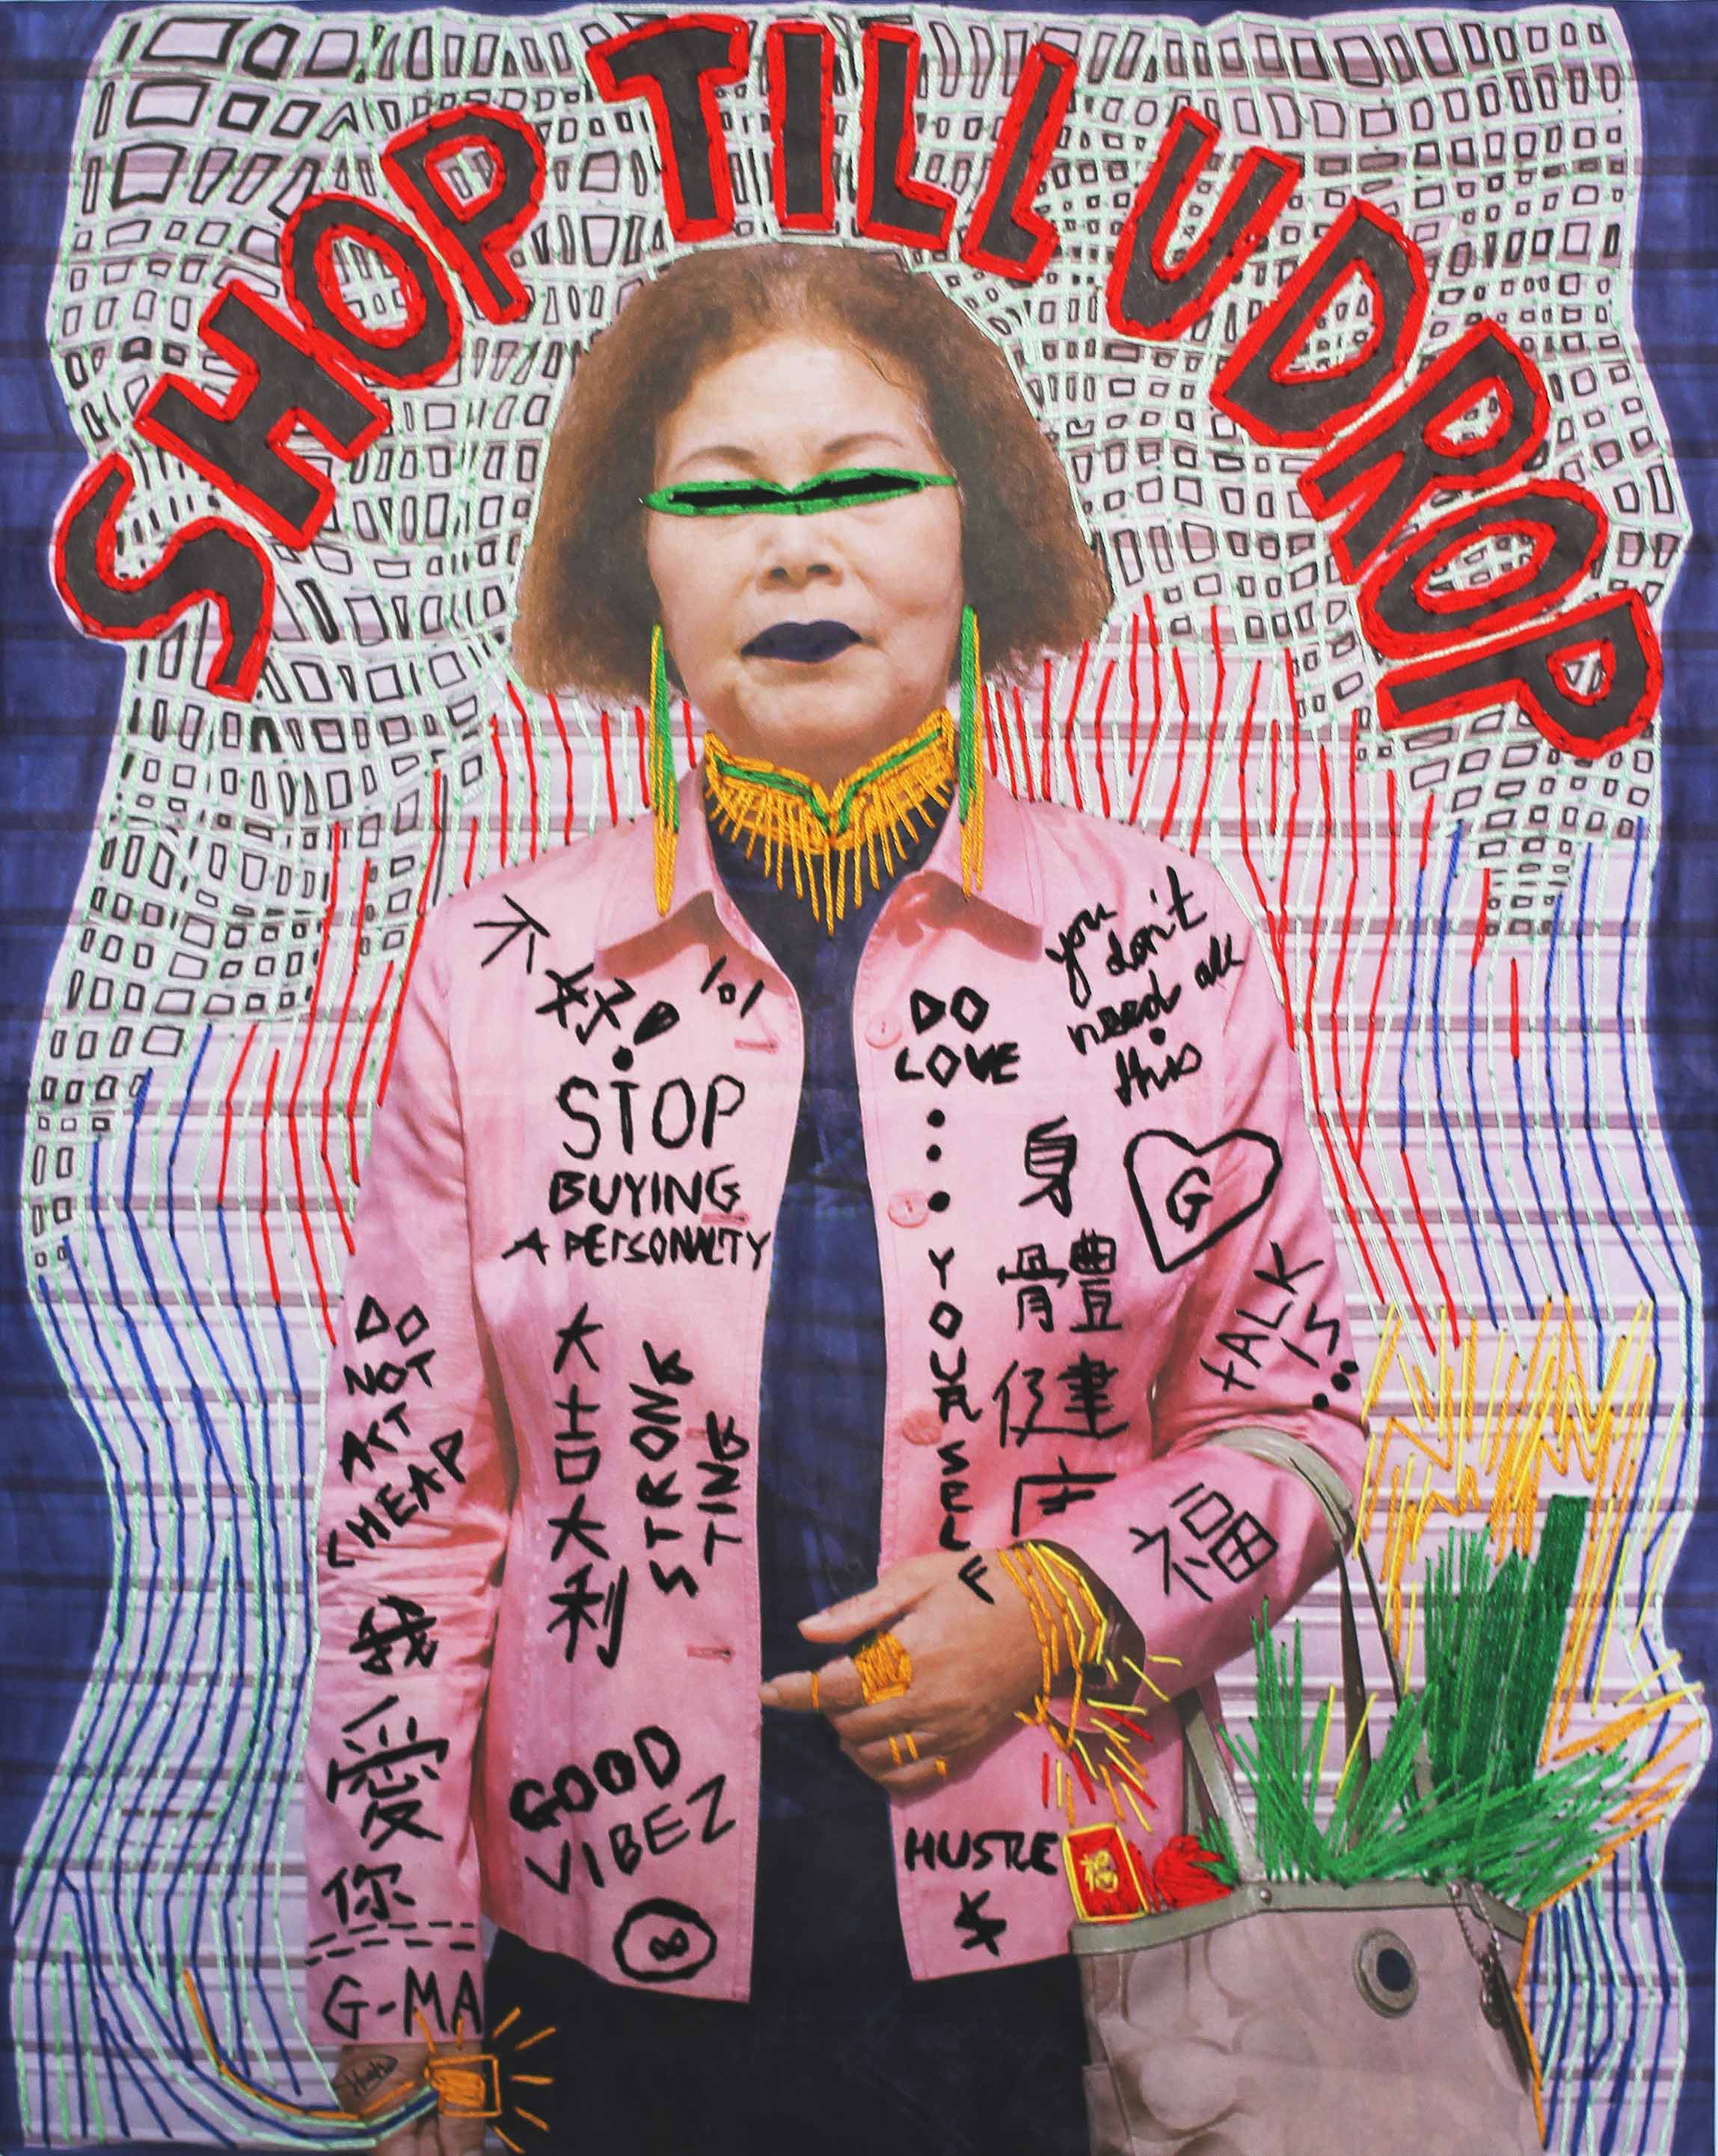 SHOP TILL U DROP
不好!
lol
STOP
BUYING
A PERSONALTY
DO
LOVE
...
YOURSELF
you
don't
need all
this
身體健
G
tALK
IS...
DO
NOT
ACT
CHEAP
大吉大利
STRONG
TING
福
我愛你
G-MA
GOOD
VIBEZ
∞
HUSTLE
$
福